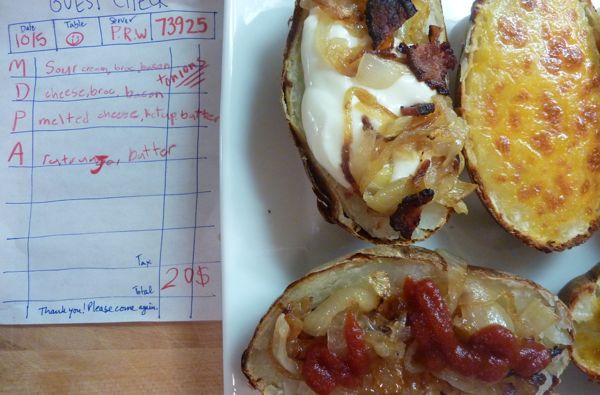 GUEST CHECK
Date Table Server 73925
10/5 PRW
M Sour cream, broc, bacon
+onions
D cheese, broc, bacon
P melted cheese, ketup butter
A butter
Tax
Total 20$
Thank you! Please come again.